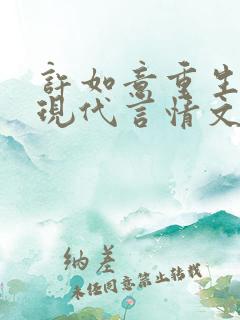 許如意重生
現代言情文
纳差
未经同意禁止转载